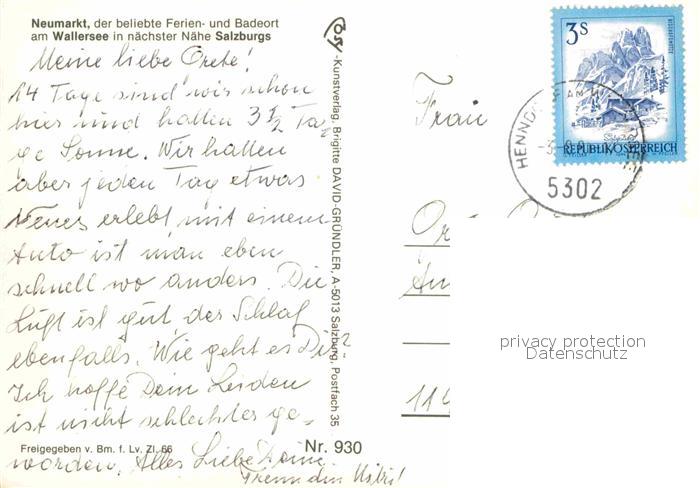 Neumarkt, der beliebte Ferien- und Badeort
am Wallersee in nächster Nähe Salzburgs
Meine liebe Grete!
14 Tage sind wir schon
hier und hatten 3 1/2 Ta-
ge Sonne. Wir hatten
aber jeden Tag etwas
Neues erlebt mit einem
Auto ist man eben
schnell wo anders. Die
Luft ist gut, der Schlaf
ebenfalls. Wie geht es Dir?
Ich hoffe Dein Leiden
ist nicht schlechter ge-
worden. Alles Liebe Deine
Freundin
Freigegeben v. Bm. f. Lv. Zl. 66
Nr. 930
-Kunstverlag, Brigitte DAVID-GRÜNDLER, A-5013 Salzburg, Postfach 35
Frau
3S
REPUBLIK ÖSTERREICH
5302
privacy protection
Datenschutz